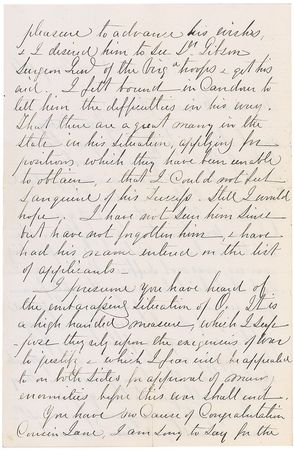 pleasure to advance his wishes
& I desired him to see Dr. Gibson
Surgeon Genl of the Virga troops & get his
aid. I felt bound in Candour to
tell him the difficulties in his way.
That there are a great many in the
state in his situation, applying for
positions which they have been unable
to obtain, & that I Could not feel
sanguine of his success. Still I would
hope. I have not seen him since
but have not forgotten him, & have
had his name entered on the list
of applicants—
I presume you have heard of
the situation of O. It is
a high handed measure, which I sup
-pose they rely upon the exigencies of war
to justify & which I fear will be appealed
to on both sides for approval of many
enormities before this war shall end.
You have no Cause of Congratulation
Cousin Jane, I am sorry to say for the